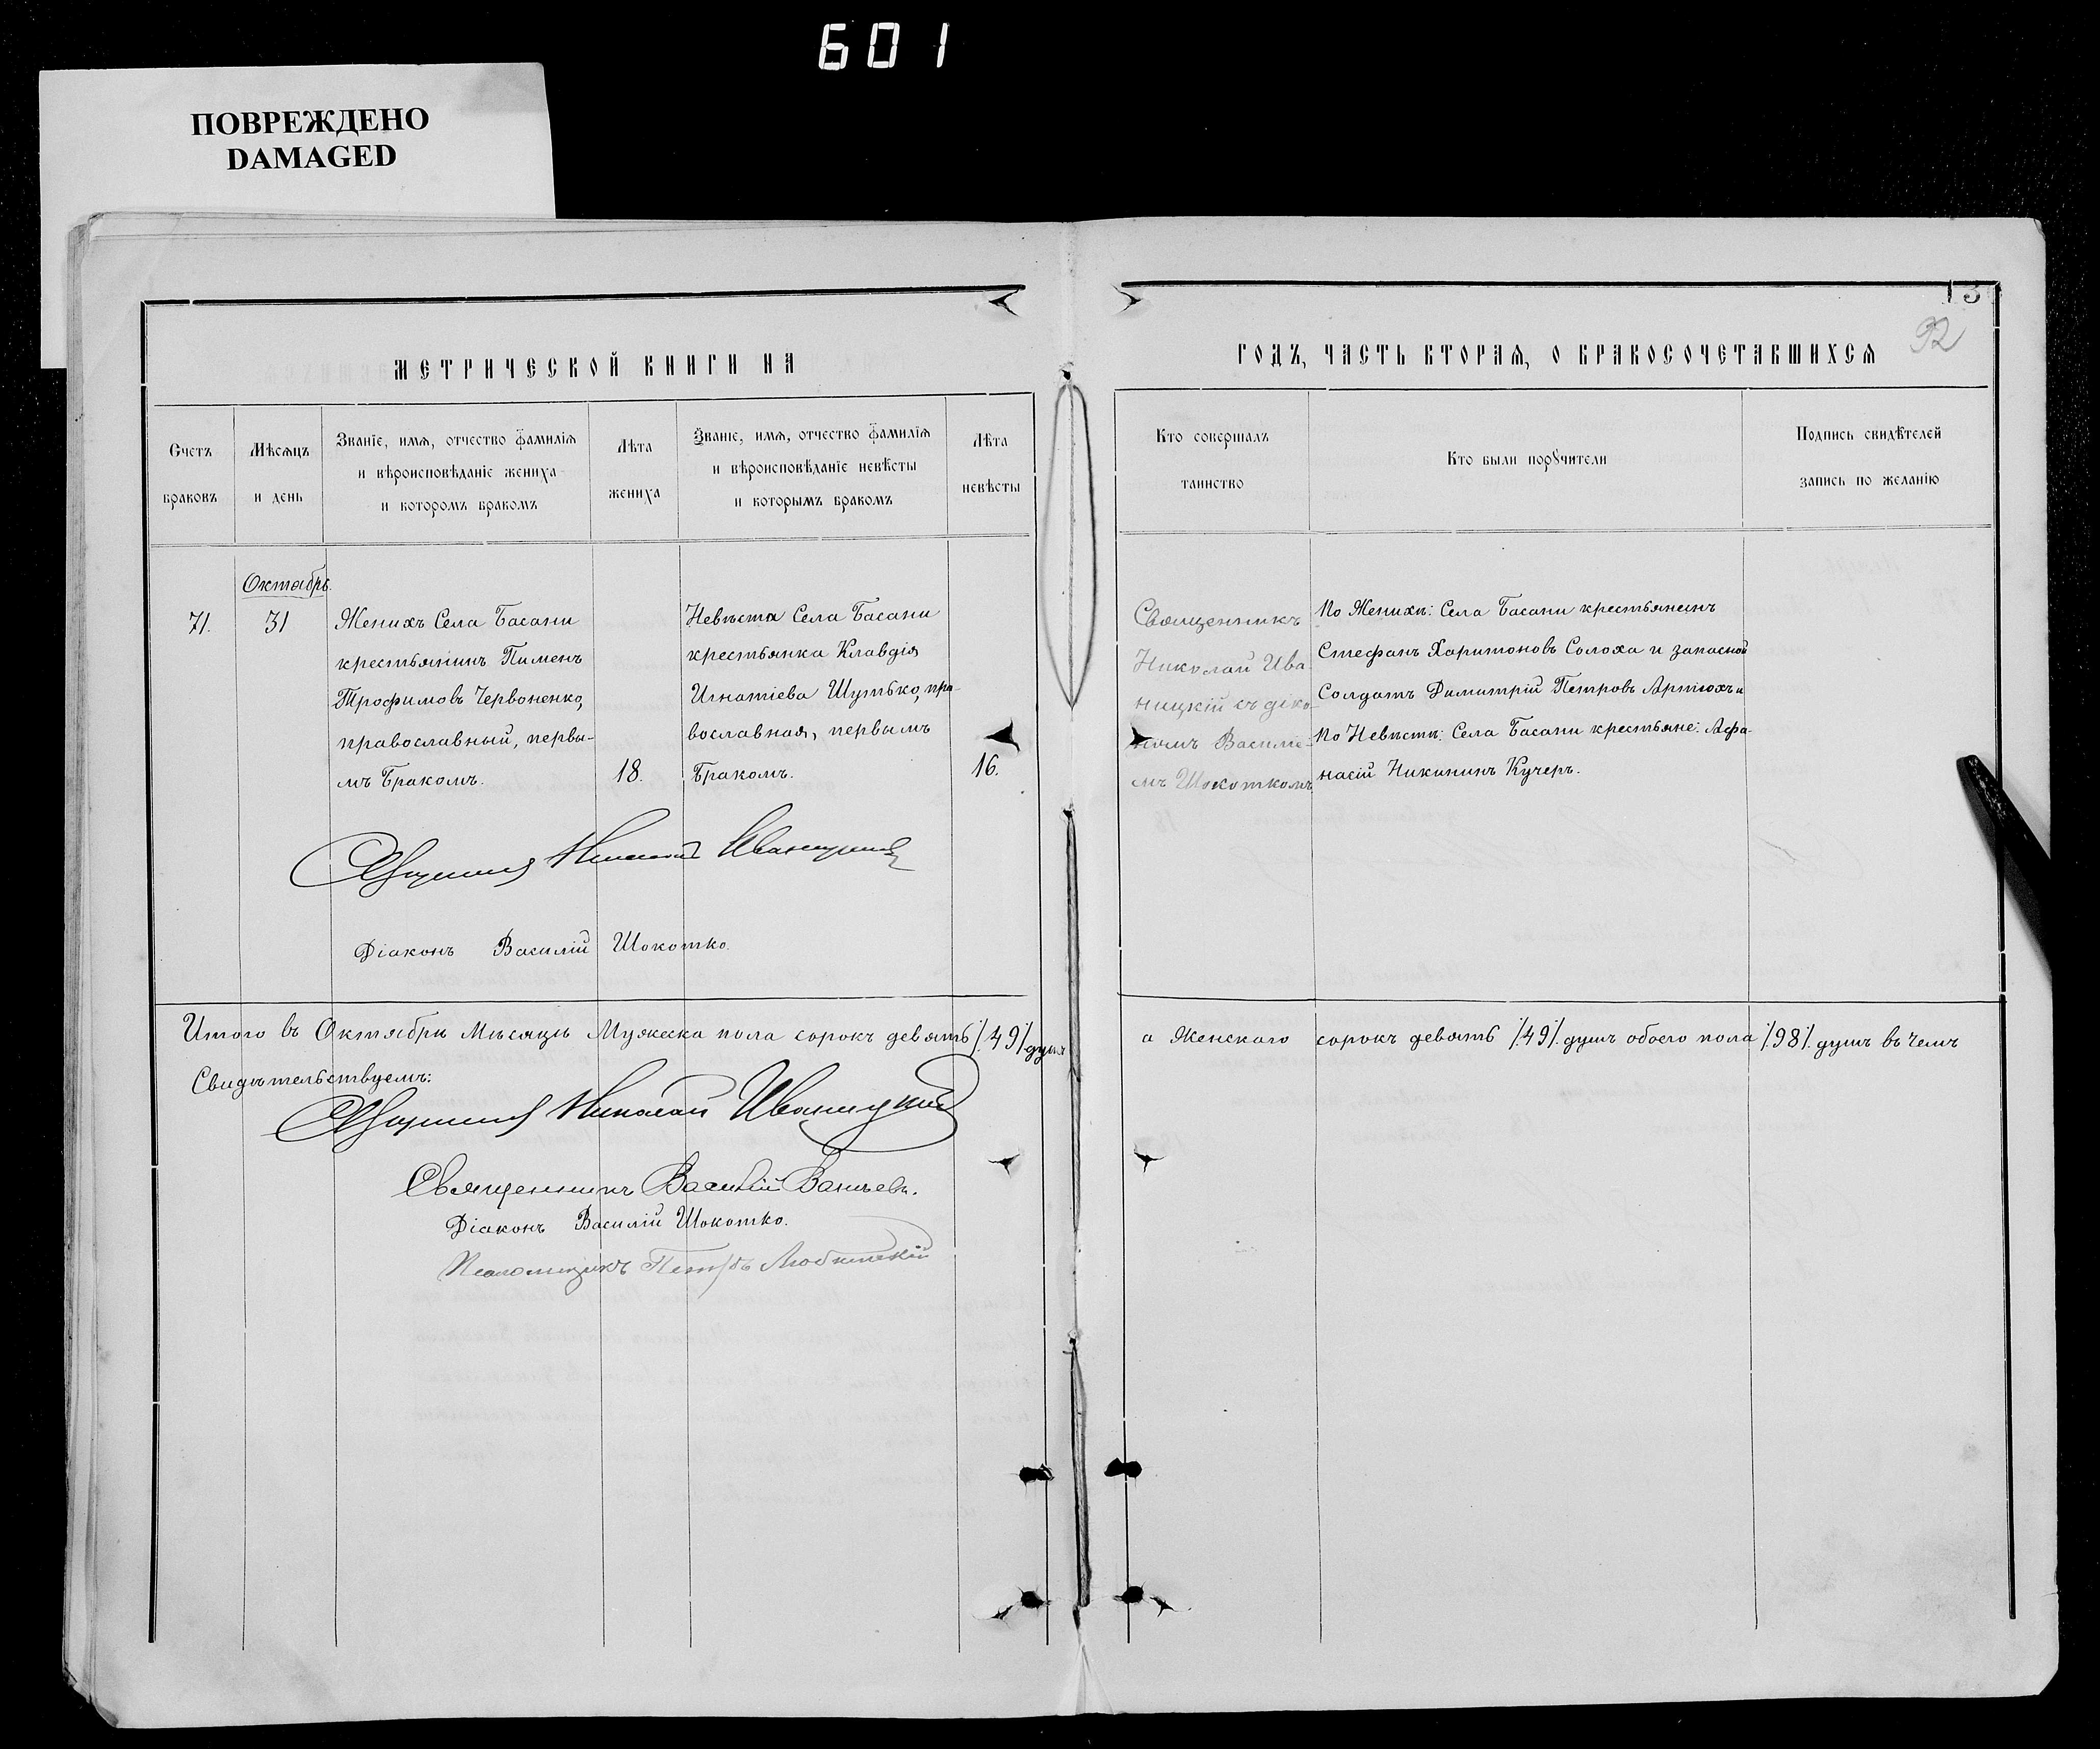 601
ПОВРЕЖДЕНО
DAMAGED
МЕТРИЧЕСКОЙ КНИГИ НА
Счетъ браковъ
Мѣсяцъ и день
Званіе, имя, отчество фамилія и вѣроисповѣданіе жениха и которомъ бракомъ
Лѣта жениха
Званіе, имя, отчество фамилія и вѣроисповѣданіе невѣсты и которымъ бракомъ
Лѣта невѣсты
Октябрь.
71.
31
Женихъ Села Басани
крестьянинъ Пименъ
Трофимовъ Червоненко,
православный, первы-
мъ Бракомъ.
18.
Невѣста Села Басани
крестьянка Клавдія
Игнатіева Шутько, пра-
вославная, первымъ
Бракомъ.
16.
Николай
Діаконъ Василій Шокотко.
Итого въ Октябрѣ Мѣсяцѣ Мужеска пола сорокъ девять /.49/. душъ
Свидѣтельствуемъ:
Николай Иваницкій
Священникъ Василій
Діаконъ Василій Шокотко.
Псаломщикъ Петръ
13
92
ГОДЪ, ЧАСТЬ ВТОРАЯ, О БРАКОСОЧЕТАВШИХСЯ
Кто совершалъ таинство
Кто были поручители
Подпись свидѣтелей запись по желанію
Священникъ
Николай Ива-
ницкій съ діко-
номъ Василіе-
мъ Шокоткомъ
По Женихѣ: Села Басани крестьянинъ
Стефанъ Харитоновъ Солоха и запасной
Солдатъ Димитрій Петровъ Артюхъ и
По Невѣстѣ: Села Басани крестьяне: Афа-
насій Никининъ Кучеръ.
а Женскаго сорокъ девять /.49/. душъ обоего пола /.98/. душъ въ чемъ